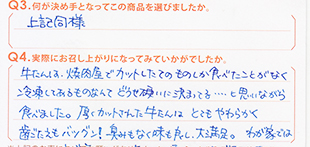 Q3.何が決め手となってこの商品を選びましたか。
上記同様
Q4.実際にお召し上がりになってみていかがでしたか。
牛たんは、焼肉屋でカットしたてのものしか食べたことがなく
冷凍してあるものなんてどうせ硬いに決まってる…と思いながら
食べました。厚くカットされた牛たんは とてもやわらかく
歯ごたえもバツグン!臭みもなく味も良し、大満足。わが家では